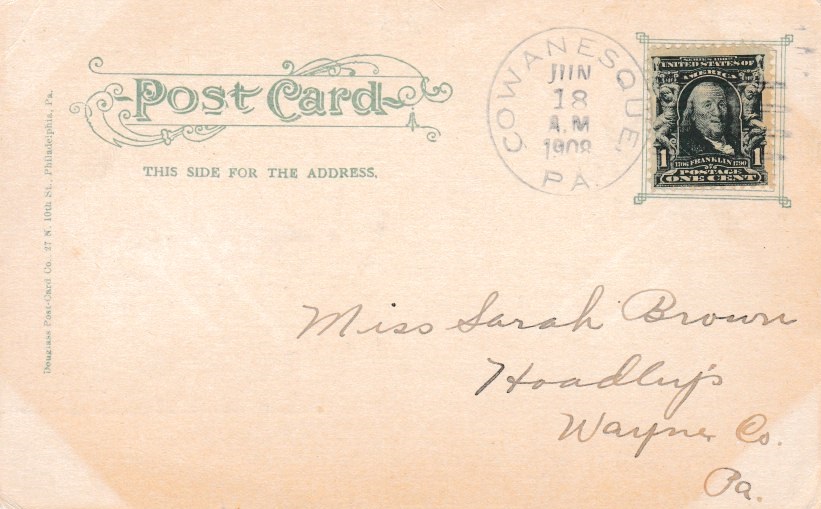 Post Card
THIS SIDE FOR THE ADDRESS.
COWANESQUE,
JUN
18
A.M
1908
PA.
SERIES 1902
UNITED STATES OF
AMERICA
1 1
1706 FRANKLIN 1790
POSTAGE
ONE CENT
Douglass Post-Card Co., 27 N. 10th St., Philadelphia, Pa.
Miss Sarah Brown
Hoadleys
Wayne Co.
Pa.